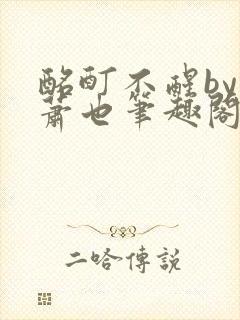 酩酊不醒by
蕭也筆趣閣
二哈傳說